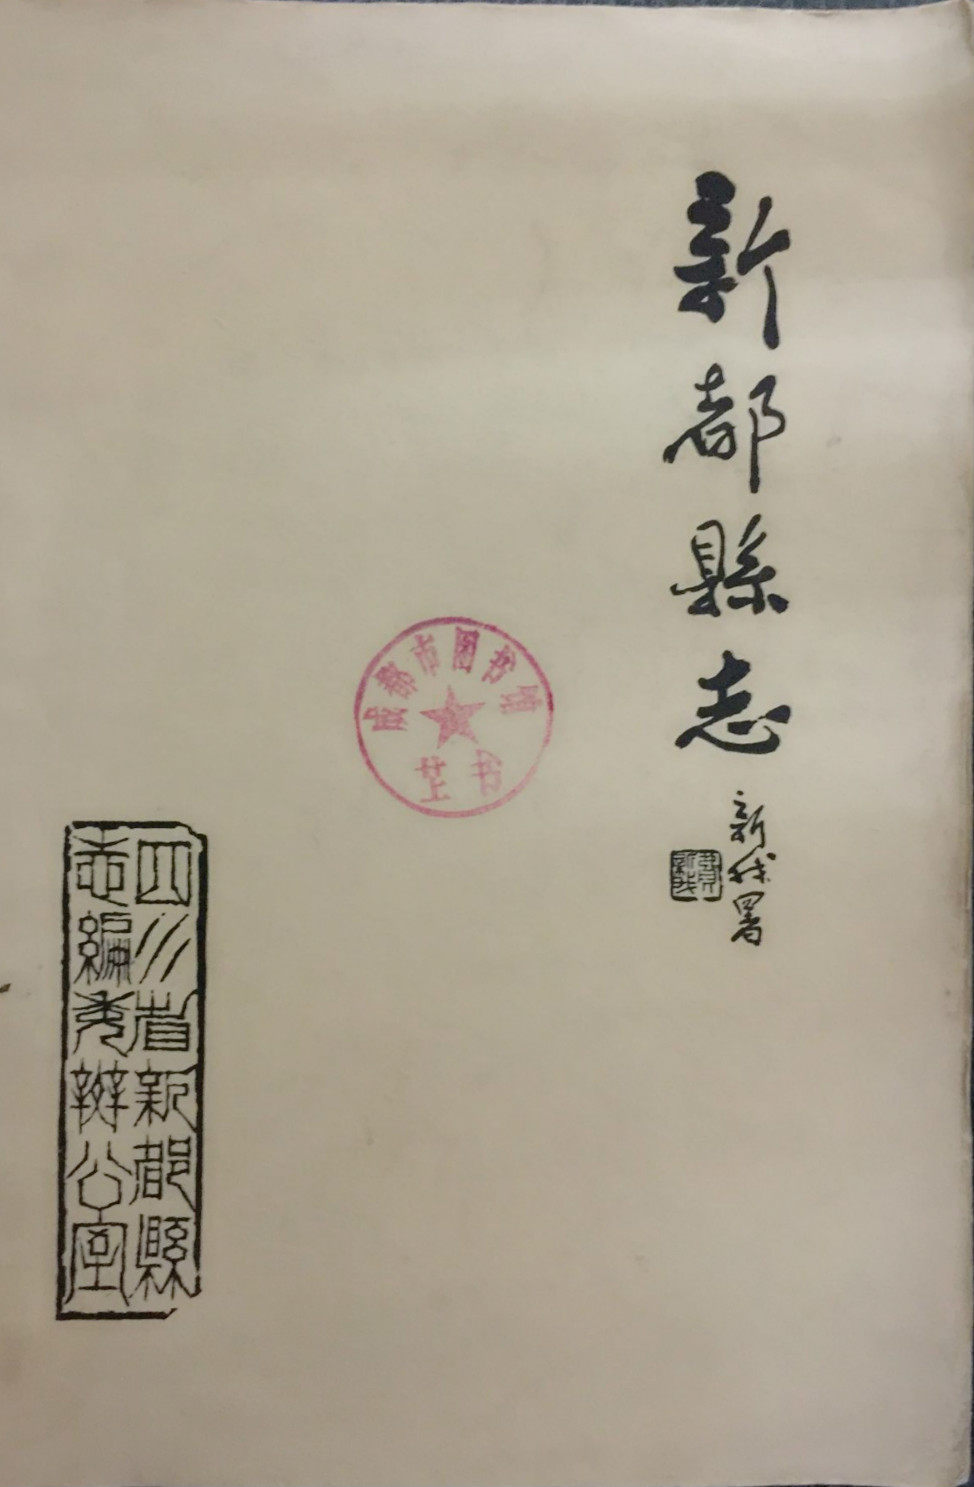 新都縣志
新我署
費新我
成都市图书馆
四川省新都縣
志編委辦公室